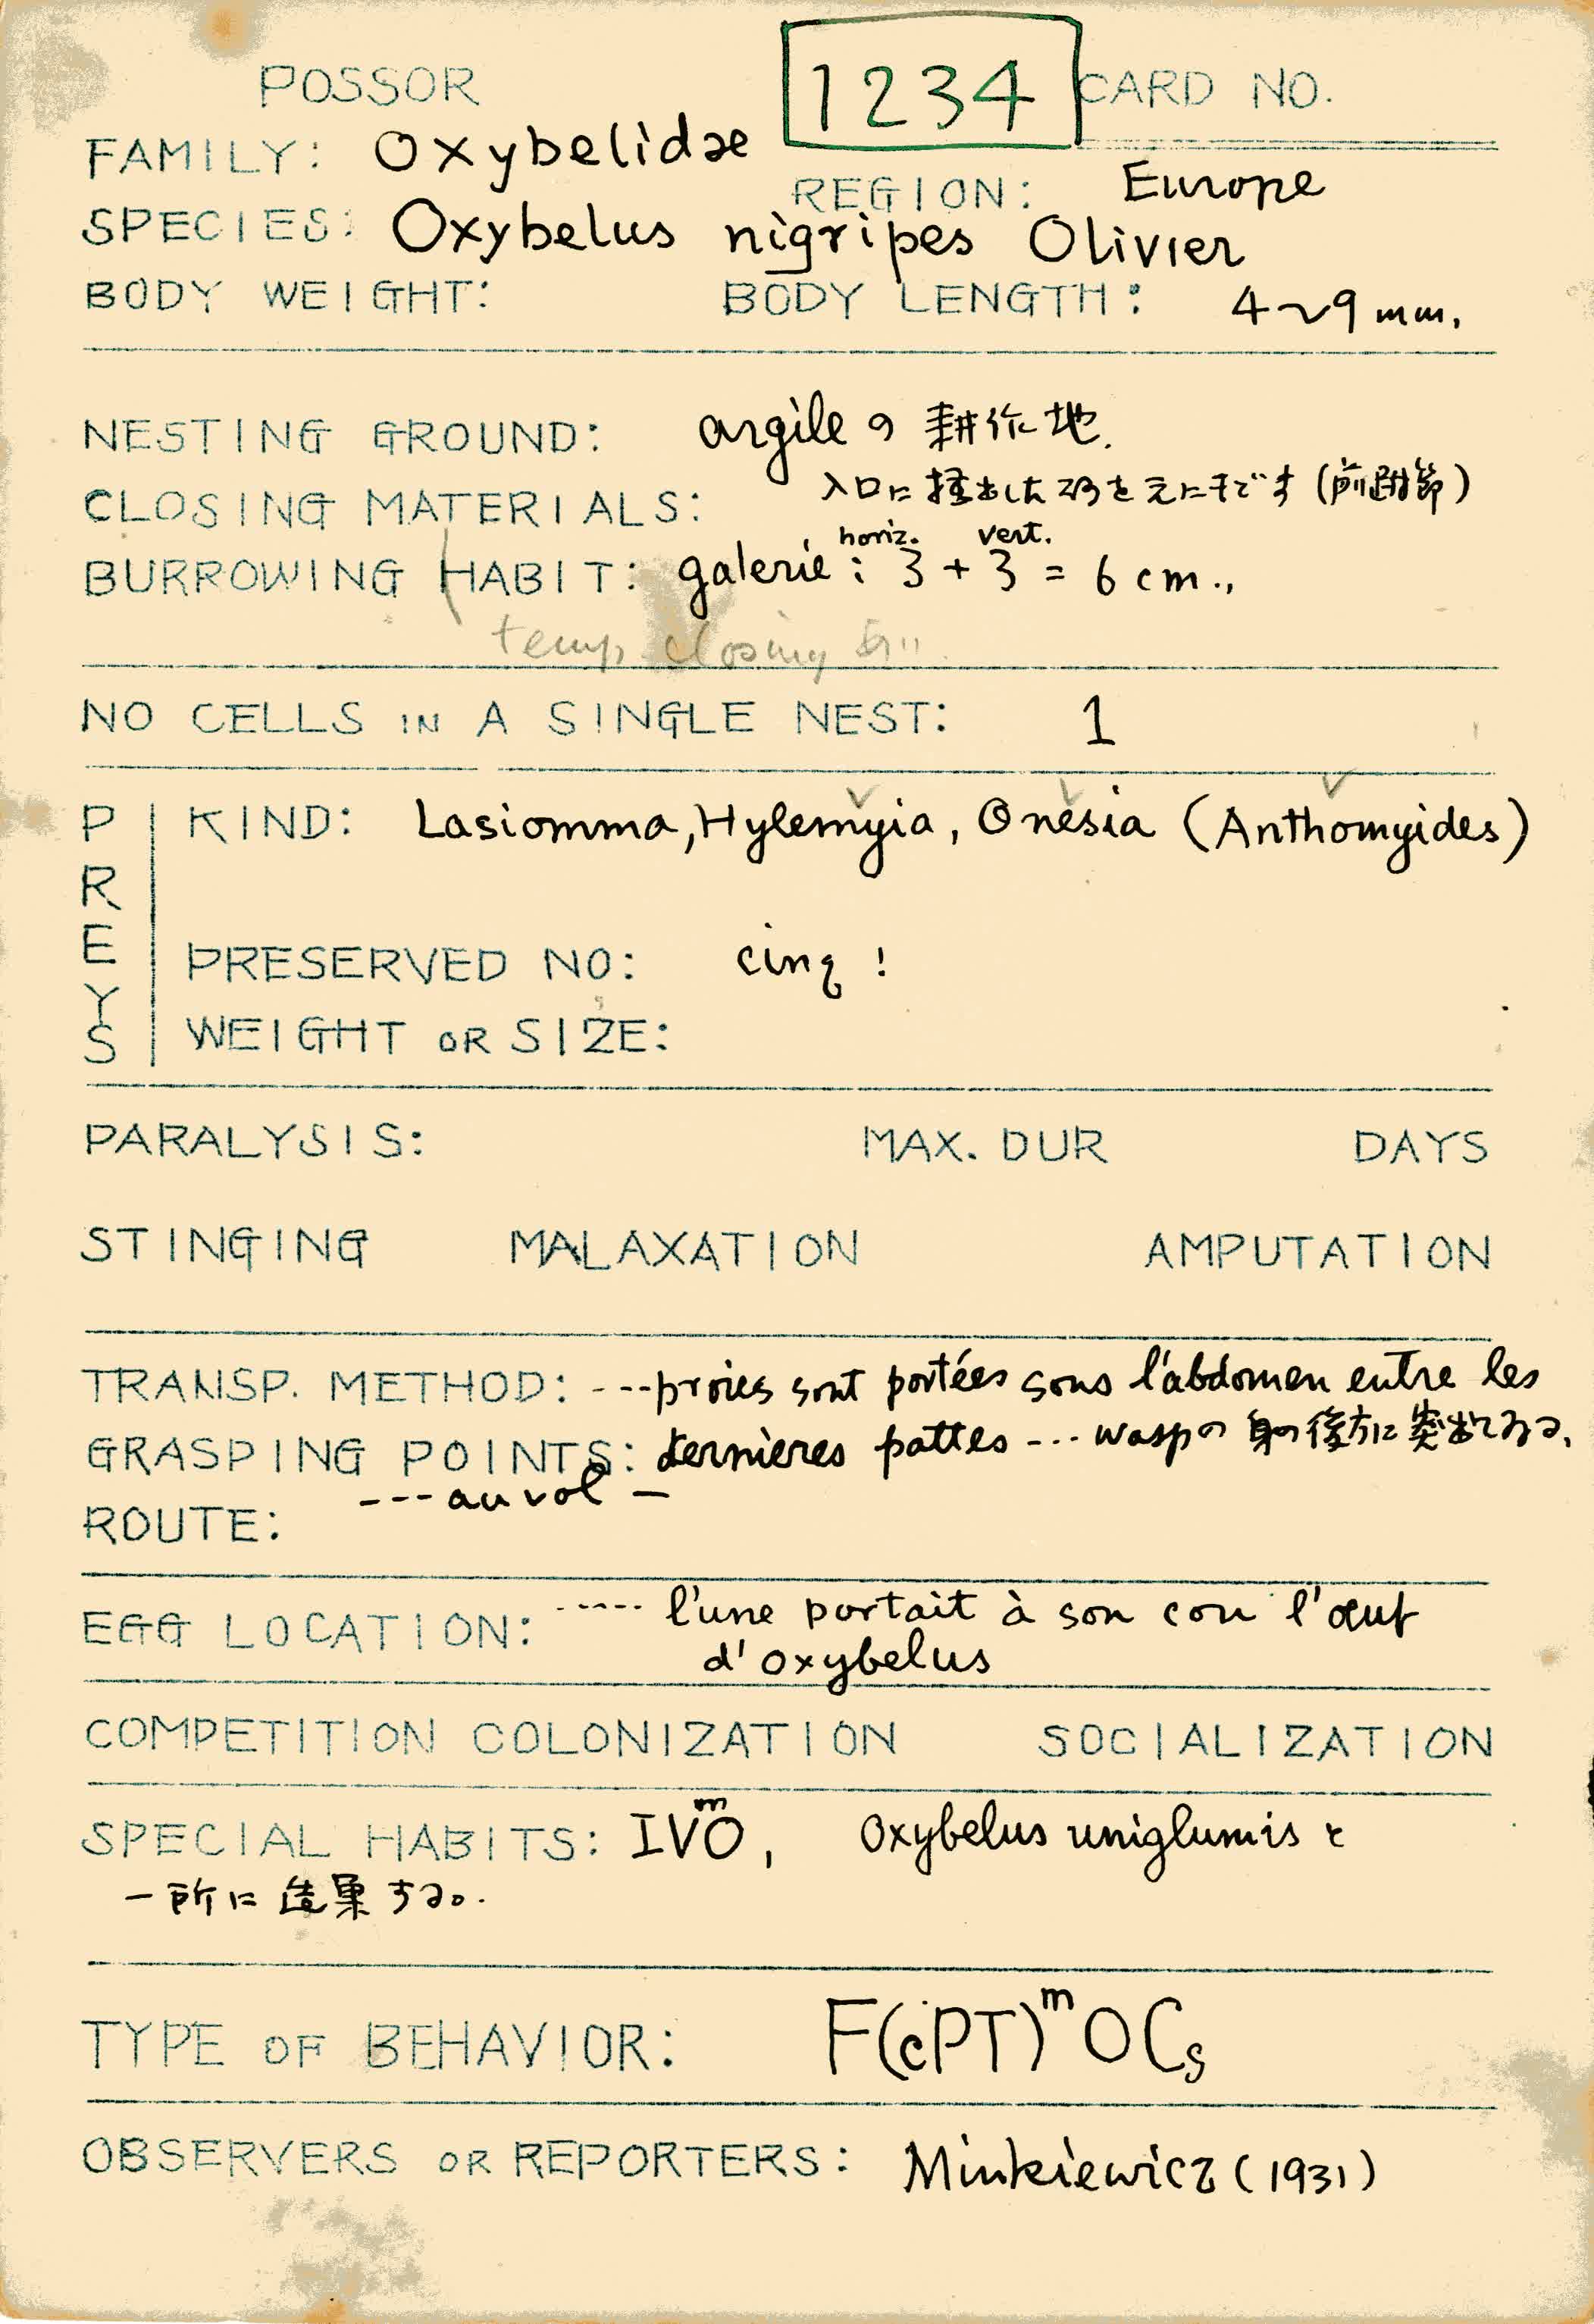 POSSOR 1234 CARD NO.
FAMILY: Oxybelidae
REGION: Europe
SPECIES: Oxybelus nigripes Olivier
BODY WEIGHT: BODY LENGTH: 4~9 mm.
NESTING GROUND: argileの耕作地.
CLOSING MATERIALS: 入口に掘出した砂を (前跗節)
horiz. vert.
BURROWING HABIT: galerie: 3 + 3 = 6 cm.,
temp. closing
NO CELLS IN A SINGLE NEST: 1
PREYS
KIND: Lasiomma, Hylemyia, Onesia (Anthomyides)
PRESERVED NO: cinq!
WEIGHT OR SIZE:
PARALYSIS: MAX. DUR DAYS
STINGING MALAXATION AMPUTATION
TRANSP. METHOD: ---proies sont portées sous l'abdomen entre les
GRASPING POINTS: dernieres pattes --- waspの身の後方に突出てゐる.
---au vol —
ROUTE:
EGG LOCATION: ----- l'une portait à son cou l'œuf
d'oxybelus
COMPETITION COLONIZATION SOCIALIZATION
SPECIAL HABITS: IVO^m, Oxybelus uniglumis と
一所に造巣する。
TYPE OF BEHAVIOR: F(cPT)^mOCs
OBSERVERS OR REPORTERS: Minkiewicz (1931)